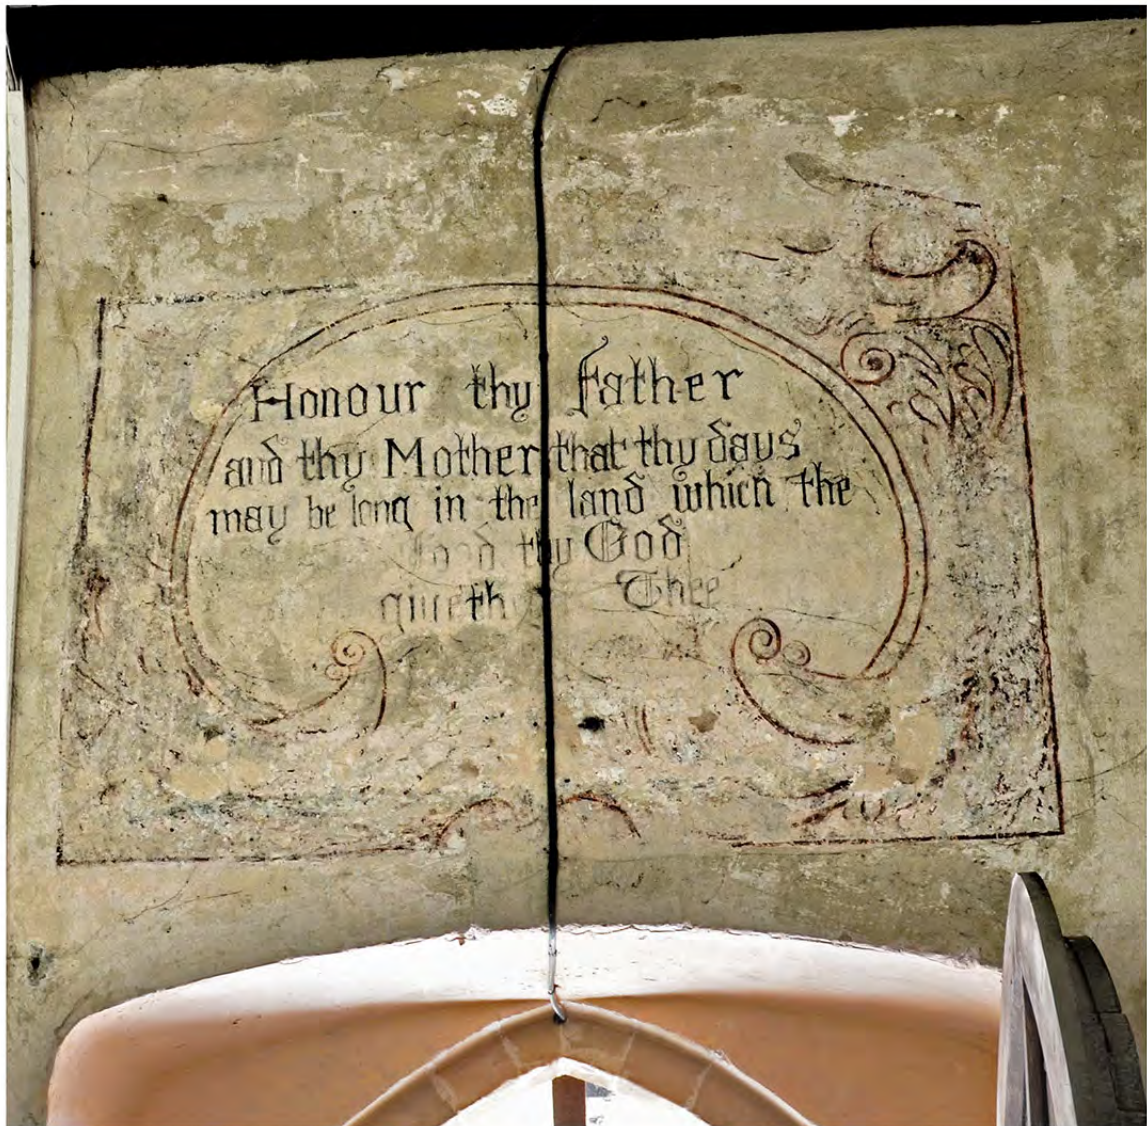 Honour thy Father
and thy Mother that thy days
may be long in the land which the
Lord thy God
giveth Thee